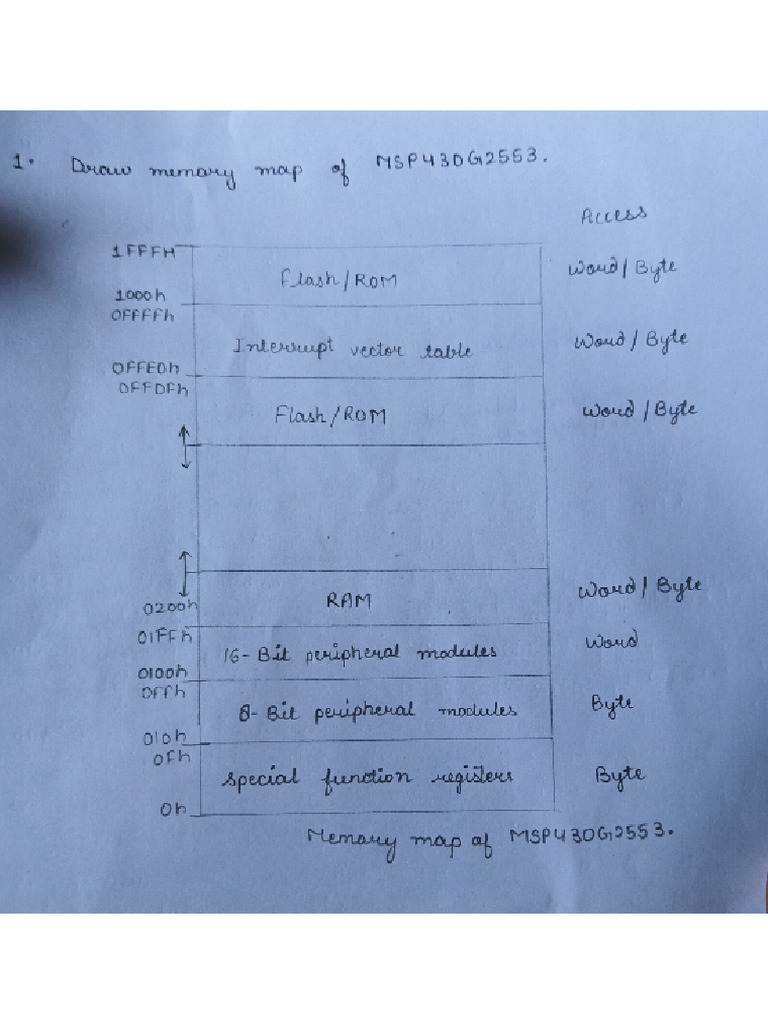 1. Draw memory map of MSP430G2553.
Access
1FFFH
Flash/ROM Word/Byte
1000h
0FFFFh
Interrupt vector table Word/Byte
0FFE0h
0FFDFh
Flash/ROM Word/Byte
RAM Word/Byte
0200h
01FFh
16-Bit peripheral modules Word
0100h
0FFh
8-Bit peripheral modules Byte
010h
0Fh
special function registers Byte
0h
Memory map of MSP430G2553.